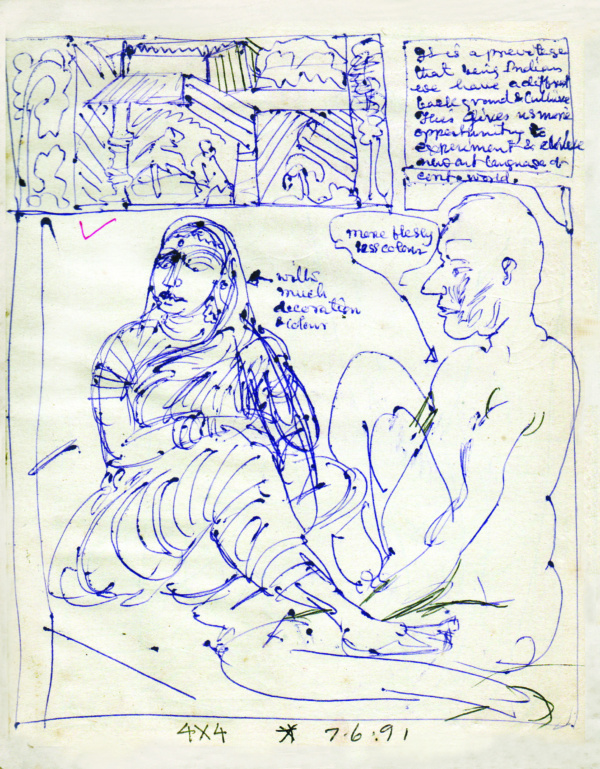 It is a previtege
that being Indian
we have a diffrent
back ground & Culture
This Gives us more
opportunity to
experiment &
new art language
cent world.
more flesly
less colour
with
much
decoration
& colour
4X4 7.6.91